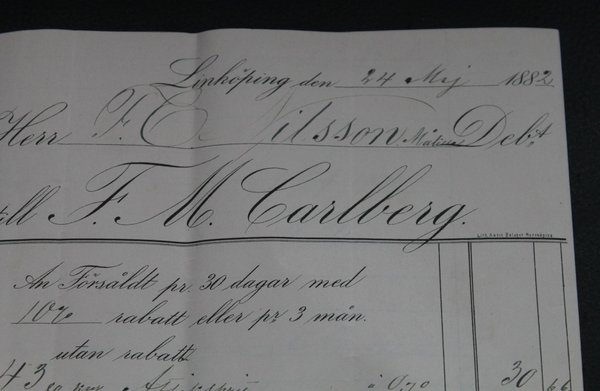 Linköping den 24 Maj 1882
Herr F. C. Nilsson Debt
till F. M. Carlberg.
Lith. Aktie Bolaget Norrköping
An Försåldt pr. 30 dagar med
10% rabatt eller pr 3 mån.
utan rabatt
43 30 66